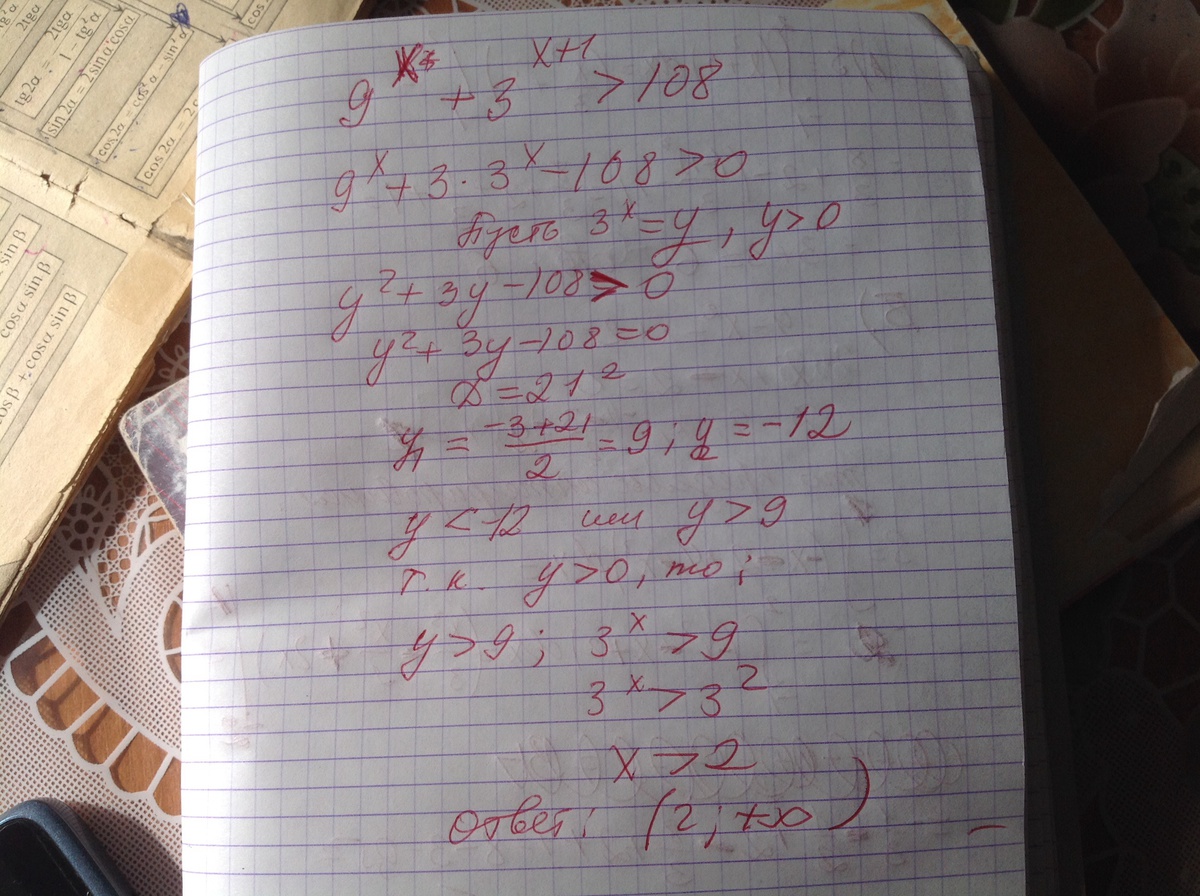 tg2α = 2tgα / 1 − tg²α
sin2α = 2 sinα cosα
cos2α = cos²α − sin²α
cos2α = 2
cosα sinβ
cosβ + cosα sinβ
9^x + 3^(x+1) > 108
9^x + 3 · 3^x − 108 > 0
Пусть 3^x = y, y > 0
y² + 3y − 108 > 0
y² + 3y − 108 = 0
D = 21²
y₁ = (−3+21)/2 = 9; y₂ = −12
y < −12 или y > 9
т.к. y > 0, то;
y > 9; 3^x > 9
3^x > 3²
x > 2
Ответ: (2; +∞)